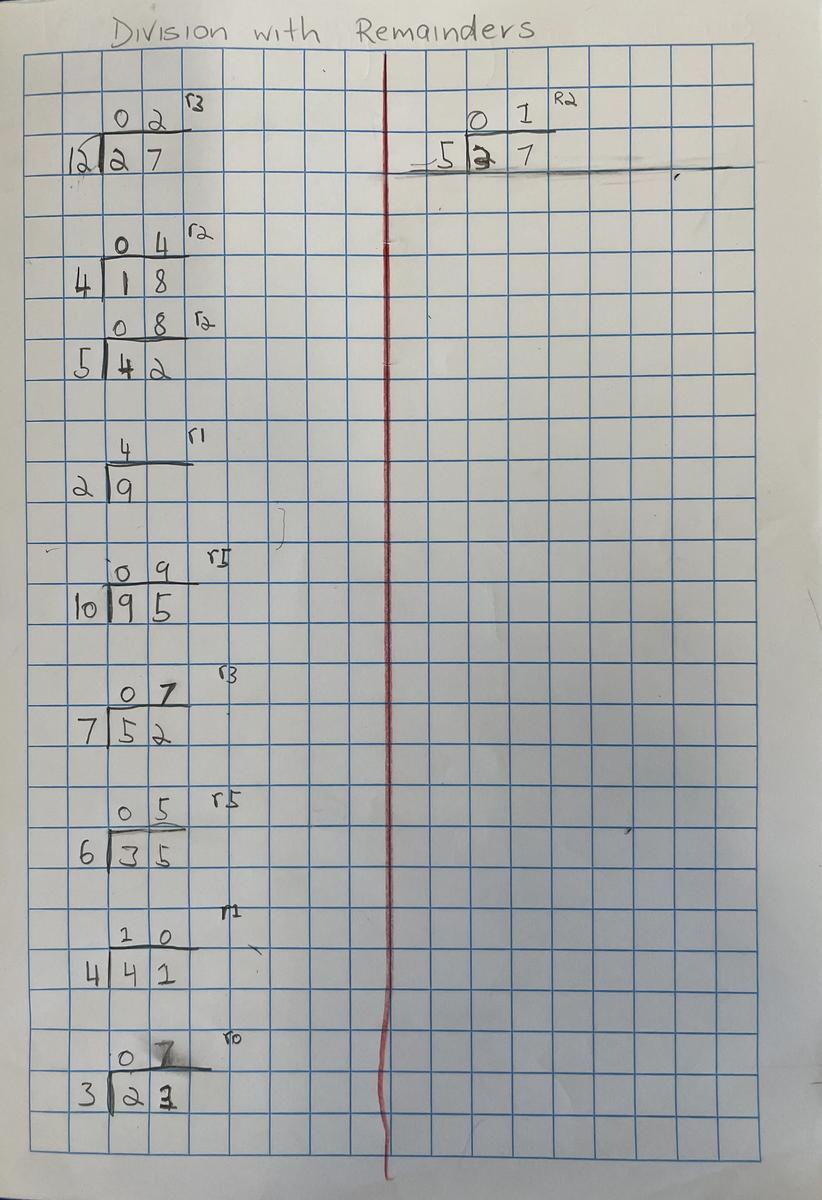 Division with Remainders
0 2 r3
12 2 7
0 4 r2
4 1 8
0 8 r2
5 4 2
4 r1
2 9
0 9 r1
10 9 5
0 7 r3
7 5 2
0 5 r5
6 3 5
1 0 r1
4 4 1
0 7 r0
3 2 1
0 1 R2
5 7